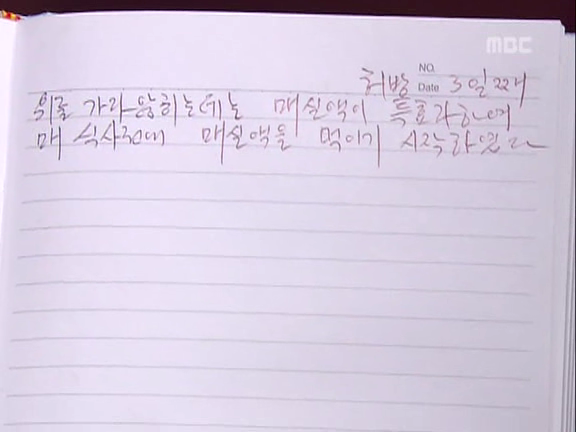 MBC
NO.
처방 Date 3일째
가라앉히는데는 매실액이 특효라하여
매 식사전에 매실액을 먹이기 시작하였다